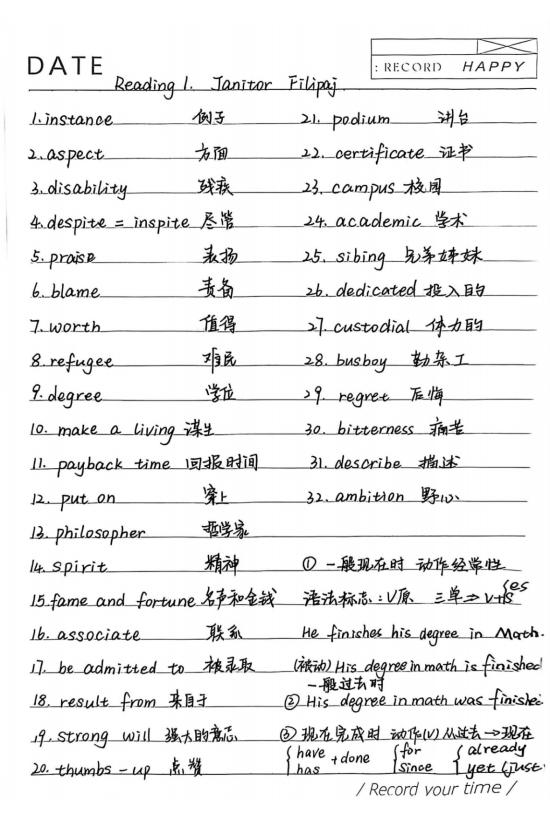 DATE
: RECORD HAPPY
Reading 1. Janitor Filipaj
1. instance 例子
2. aspect 方面
3. disability 残疾
4. despite = inspite 尽管
5. praise 表扬
6. blame 责备
7. worth 值得
8. refugee 难民
9. degree 学位
10. make a living 谋生
11. payback time 回报时间
12. put on 穿上
13. philosopher 哲学家
14. spirit 精神
15. fame and fortune 名声和金钱
16. associate 联系
17. be admitted to 被录取
18. result from 来自于
19. strong will 强大的意志
20. thumbs-up 点赞
21. podium 讲台
22. certificate 证书
23. campus 校园
24. academic 学术
25. sibing 兄弟姊妹
26. dedicated 投入的
27. custodial 体力的
28. busboy 勤杂工
29. regret 后悔
30. bitterness 痛苦
31. describe 描述
32. ambition 野心
① 一般现在时 动作经常性
语法标志：V原 三单⇒V+s es
He finishes his degree in Math.
(被动) His degree in math is finished
一般过去时
② His degree in math was finishe
③ 现在完成时 动作(V) 从过去→现在
have has + done for since already yet (just
/ Record your time /